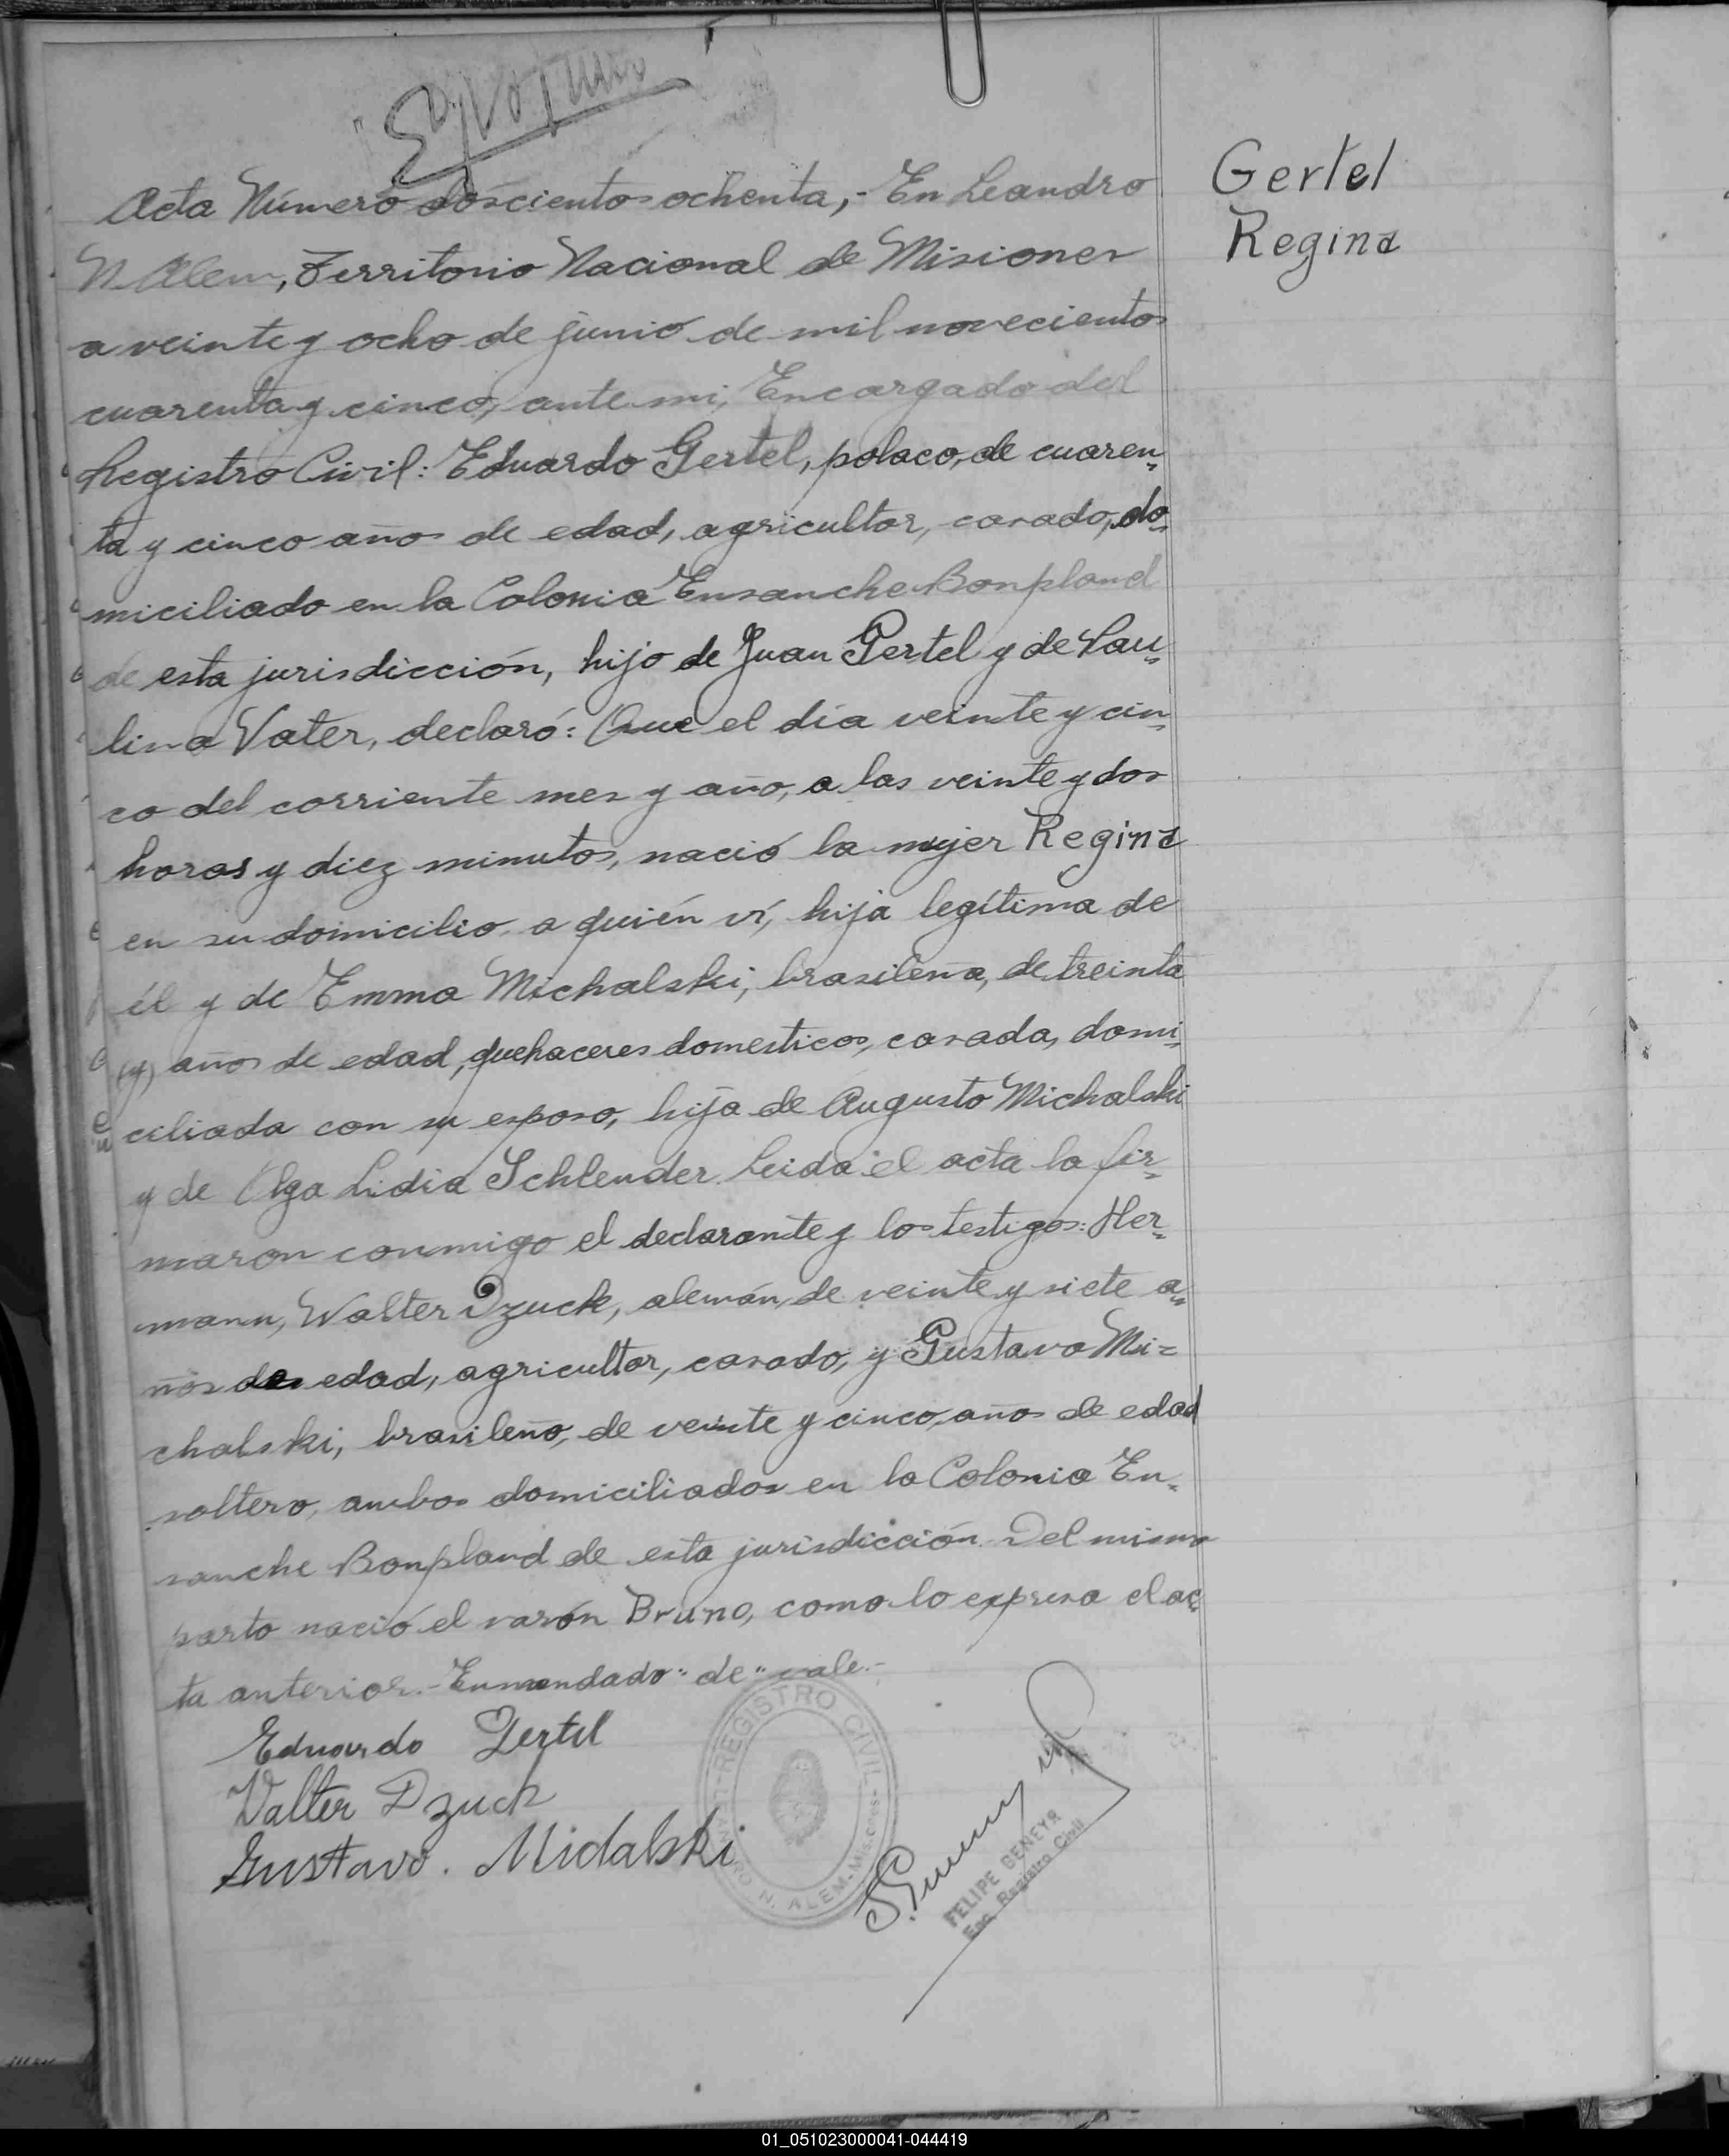 Acta Número doscientos ochenta,- En Leandro
N. Alem, Territorio Nacional de Misiones
a veinte y ocho de junio de mil novecientos
cuarenta y cinco, ante mi, Encargado del
Registro Civil: Eduardo Gertel, polaco, de cuaren=
ta y cinco años de edad, agricultor, casado, do=
miciliado en la Colonia Ensanche Bonpland
de esta jurisdicción, hijo de Juan Gertel y de Pau=
lina Vater, declaró: Que el día veinte y cin=
co del corriente mes y año, a las veinte y dos
horas y diez minutos, nació la mujer Regina
en su domicilio, a quién ví, hija legítima de
él y de Emma Michalski, brasileña, de treinta
(y) años de edad, quehaceres domesticos, casada, domi=
ciliada con su esposo, hija de Augusto Michalski
y de Olga Lidia Schlender. Leida el acta la fir=
maron conmigo el declarante y los testigos: Her=
mann, Walter Dzuck, alemán, de veinte y siete a=
ños de edad, agricultor, casado, y Gustavo Mi=
chalski, brasileño, de veinte y cinco, años de edad
soltero, ambos domiciliados en la Colonia En=
sanche Bonpland de esta jurisdicción. Del mismo
parto nació el varón Bruno, como lo expresa el ac=
ta anterior.- Enmendado "de" vale.-
Eduardo Gertel
Walter Dzuck
Gustavo. Midalski
REGISTRO CIVIL
N. ALEM - Misiones
FELIPE GENEYR
Enc. Registro Civil
Gertel
Regina
01_051023000041-044419